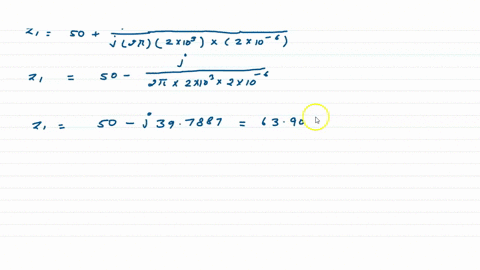 z₁ = 50 + 1/(j(2π)(2×10³)×(2×10⁻⁶))
z₁ = 50 - j/(2π×2×10³×2×10⁻⁶)
z₁ = 50 - j39.7887 = 63.90